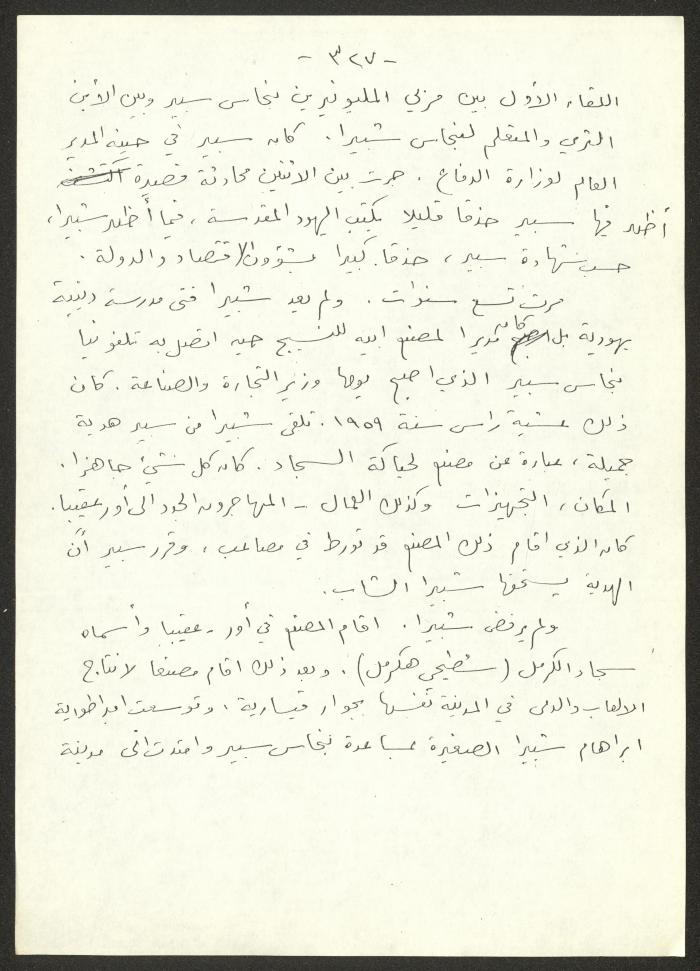 - ٣٢٧ -
اللقاء الأول بين مربي المليونيرين بنحاس سبير وبين الابن
الثري والمتعلم لبنحاس شبيرا. كان سبير في حينه المدير
العام لوزارة الدفاع. جرت بين الاثنين محادثة قصيرة
أظهر فيها سبير حذقا قليلا بكتب اليهود المقدسة، فيما أظهر شبيرا،
حسب شهادة سبير، حذقا كبيرا بشؤون الاقتصاد والدولة.
مرت تسع سنوات. ولم يعد شبيرا فتى مدرسة دينية
يهودية بل كان مديرا لمصنع ابيه للنسيج حين اتصل به تلفونيا
بنحاس سبير الذي اصبح يومها وزير التجارة والصناعة. كان
ذلك عشية راس سنة ١٩٥٩. تلقى شبيرا من سبير هدية
جميلة، عبارة عن مصنع لحياكة السجاد. كان كل شيء جاهزا.
المكان، التجهيزات وكذلك العمال - المهاجرون الجدد الى أور عقيبا.
كان الذي اقام ذلك المصنع قد تورط في مصاعب، وقرر سبير أن
الهدية يستحقها شبيرا الشاب.
ولم يرفض شبيرا. اقام المصنع في أور - عقيبا وأسماه
سجاد الكرمل (شطيحي هكرمل). وبعد ذلك اقام مصنعا لانتاج
الالعاب والدمى في المدينة نفسها بجوار قيسارية. وتوسعت امبراطورية
ابراهام شبيرا الصغيرة بمساعدة بنحاس سبير وامتدت الى مدينة